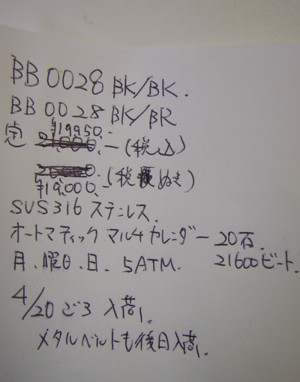 BB0028 BK/BK.
BB0028 BK/BR
¥19950.
定 21000.-(税込)
(税抜き)
¥19,000.
SUS316 ステンレス.
オートマティック マルチカレンダー 20石.
月、曜日、日、5ATM. 21600ビート.
4/20ごろ 入荷!
メタルベルトも後日入荷.